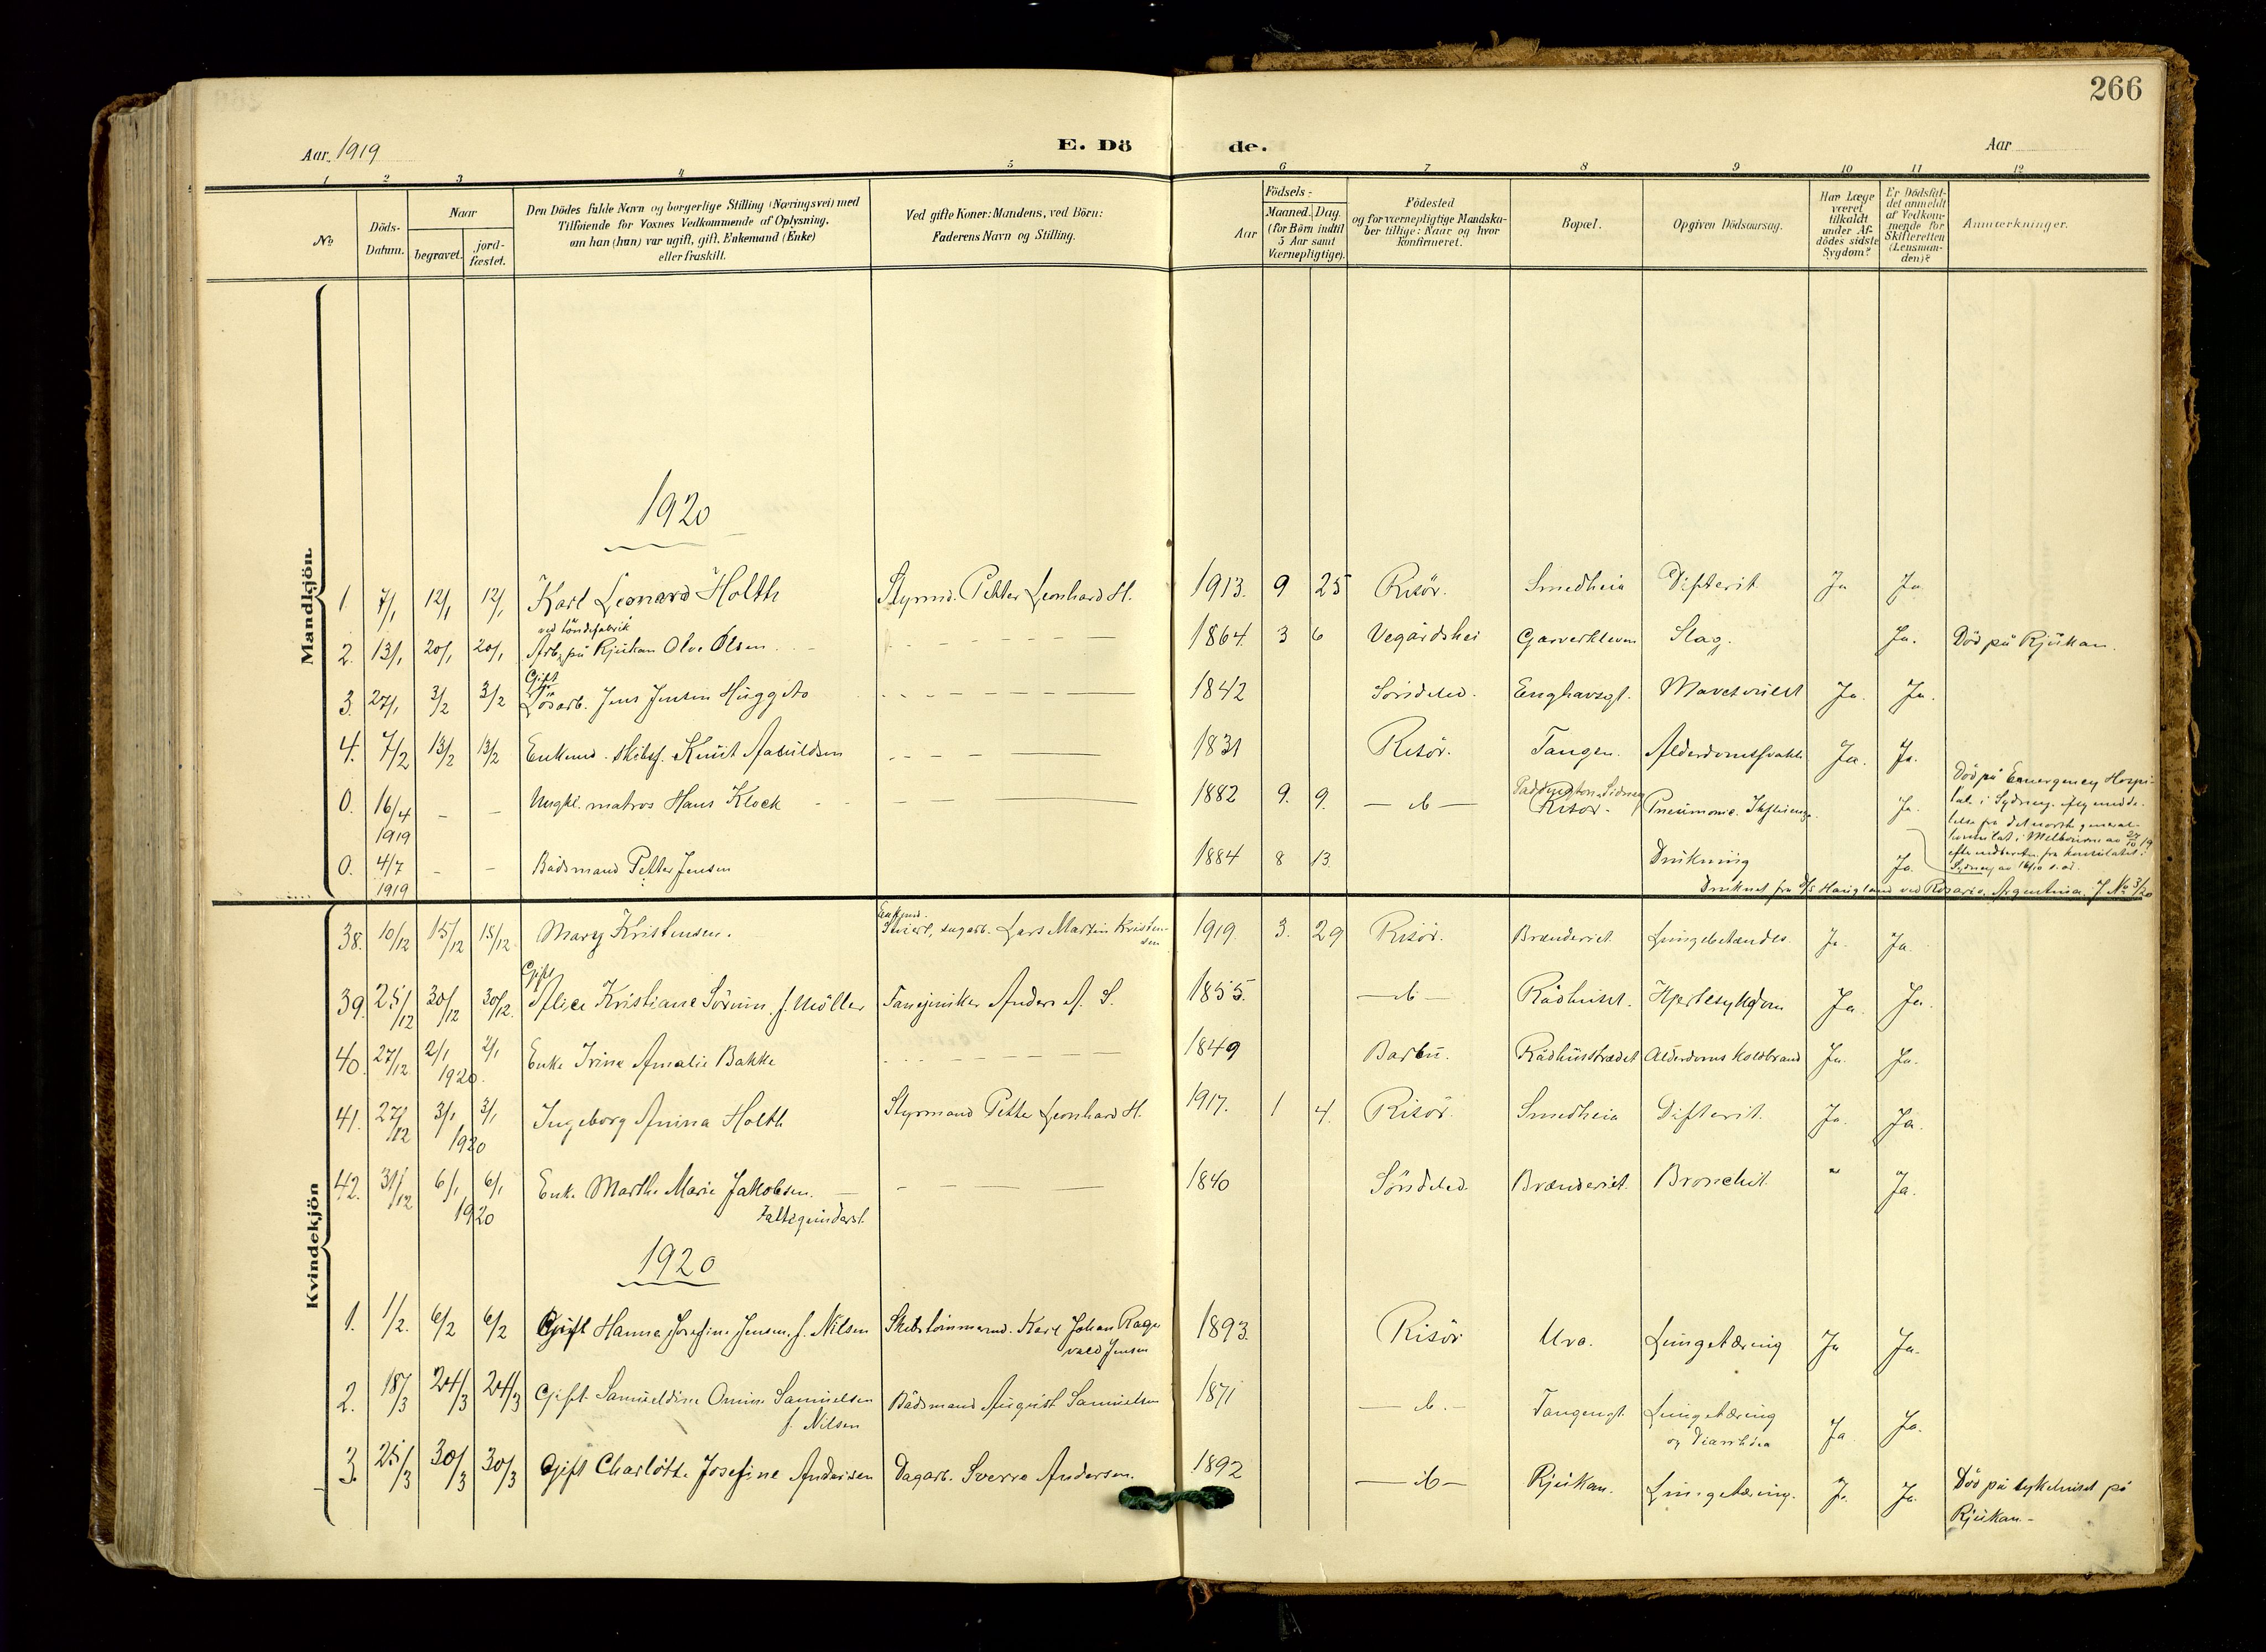 266
Aar 1919
E. Dö de.
Aar
1 2 3 4 5 6 7 8 9 10 11 12
No
Döds-
Datum.
Naar
begravet.
jord-
fæstet.
Den Dödes fulde Navn og borgerlige Stilling (Næringsvei) med
Tilföiende for Voxnes Vedkommende af Oplysning,
om han (hun) var ugift, gift, Enkemand (Enke)
eller fraskilt.
Ved gifte Koner: Mandens, ved Börn:
Faderens Navn og Stilling.
Födsels-
Aar
Maaned. Dag.
(for Börn indtil
5 Aar samt
Værnepligtige).
Födested
og for værnepligtige Mandska-
ber tillige: Naar og hvor
konfirmeret.
Bopæl.
Opgiven Dödsaarsag.
Har Læge
været
tilkaldt
under Af-
dödes sidste
Sygdom?
Er Dödsfal-
det anmeldt
af Vedkom-
mende for
Skifteretten
(Lensman-
den)?
Anmærkninger.
Mandkjön.
1920
1. 7/1 12/1 12/1 Karl Leonard Holth Styrmd. Petter Leonhard H. 1913. 9 25 Risör. Smedheia Difterit Ja Ja
ved Töndefabrik
2. 13/1 20/1 20/1 Arb. på Rjukan Olve Olsen 1864. 3 6 Vegårdshei Garverkleven Slag. Ja. Död på Rjukan.
Gift
3. 27/1 3/2 3/2 Lösarb. Jens Jensen Huggeto 1842 Söndeled. Enghavegt. Mavesvulst Ja. Ja.
4. 7/2 13/2 13/2 Enkemd. skibsf. Knut Aabuldsen 1831 Risör. Tangen. Alderdomssvakh Ja. Ja.
0. 16/4 1919 - - Ungk. matros Hans Klock 1882 9. 9. — do — Paddington, Sidney Risör. Pneumonie. Influenza. Ja.
Död på Emergency Hospi-
tal i Sydney. efter medde-
lelse fra det norske general-
konsulat i Melbourne av 27/10 19
efter indberetn. fra konsulatet i
Sydney av 16/10 s. å.
0. 4/7 1919 - - Bådsmand Petter Jensen 1884 8 13 Drukning Ja.
Druknet fra D/S Haugland ved Rosario, Argentina. J. No 3/20
Kvindekjön
Enkemd.
38. 10/12 15/12 15/12 Mary Kristensen. sagarb. Lars Martin Kristen-
sen 1919. 3. 29 Risör. Brænderiet. Lungebetændel. Ja. Ja.
Gift
39. 25/12 30/12 30/12. Alice Kristiane Sörum, f. Möller Anders A. S. 1855. — do — Rådhuset. Hjertesykdom Ja. Ja.
40. 27/12 2/1 1920. 2/1 Enke Trine Amalie Bakke 1849 Barbu. Rådhusstrædet Alderdoms koldbrand Ja. Ja.
41. 27/12 3/1 1920 3/1 Ingeborg Anina Holth Styrmand Petter Leonhard H. 1917. 1 4. Risör. Smedheia Difterit. Ja. Ja.
42. 31/12 6/1 1920 6/1 Enke Marthe Marie Jakobsen. 1840 Söndeled Brænderiet. Bronchit. " Ja.
1920
1. 1/2. 6/2 6/2 Gift Hanna Josefine Jensen, f. Nilsen Skibstömmermd. Karl Johan Ragn
vald Jensen 1893. Risör Ura. Lungetæring Ja Ja.
2. 18/3 24/3 24/3 Gift Samueldine Samuelsen
f. Nilsen Bådsmand August Samuelsen 1871 — do. — Tangengt. Lungetæring
og Diarrhöea Ja Ja.
3. 25/3 30/3 30/3 Gift Charlotte Josefine Andersen Dagarb. Sverre Andersen. 1892 — do — Rjukan. Lungetæring. Ja. Ja. Död på sykehuset på
Rjukan.-